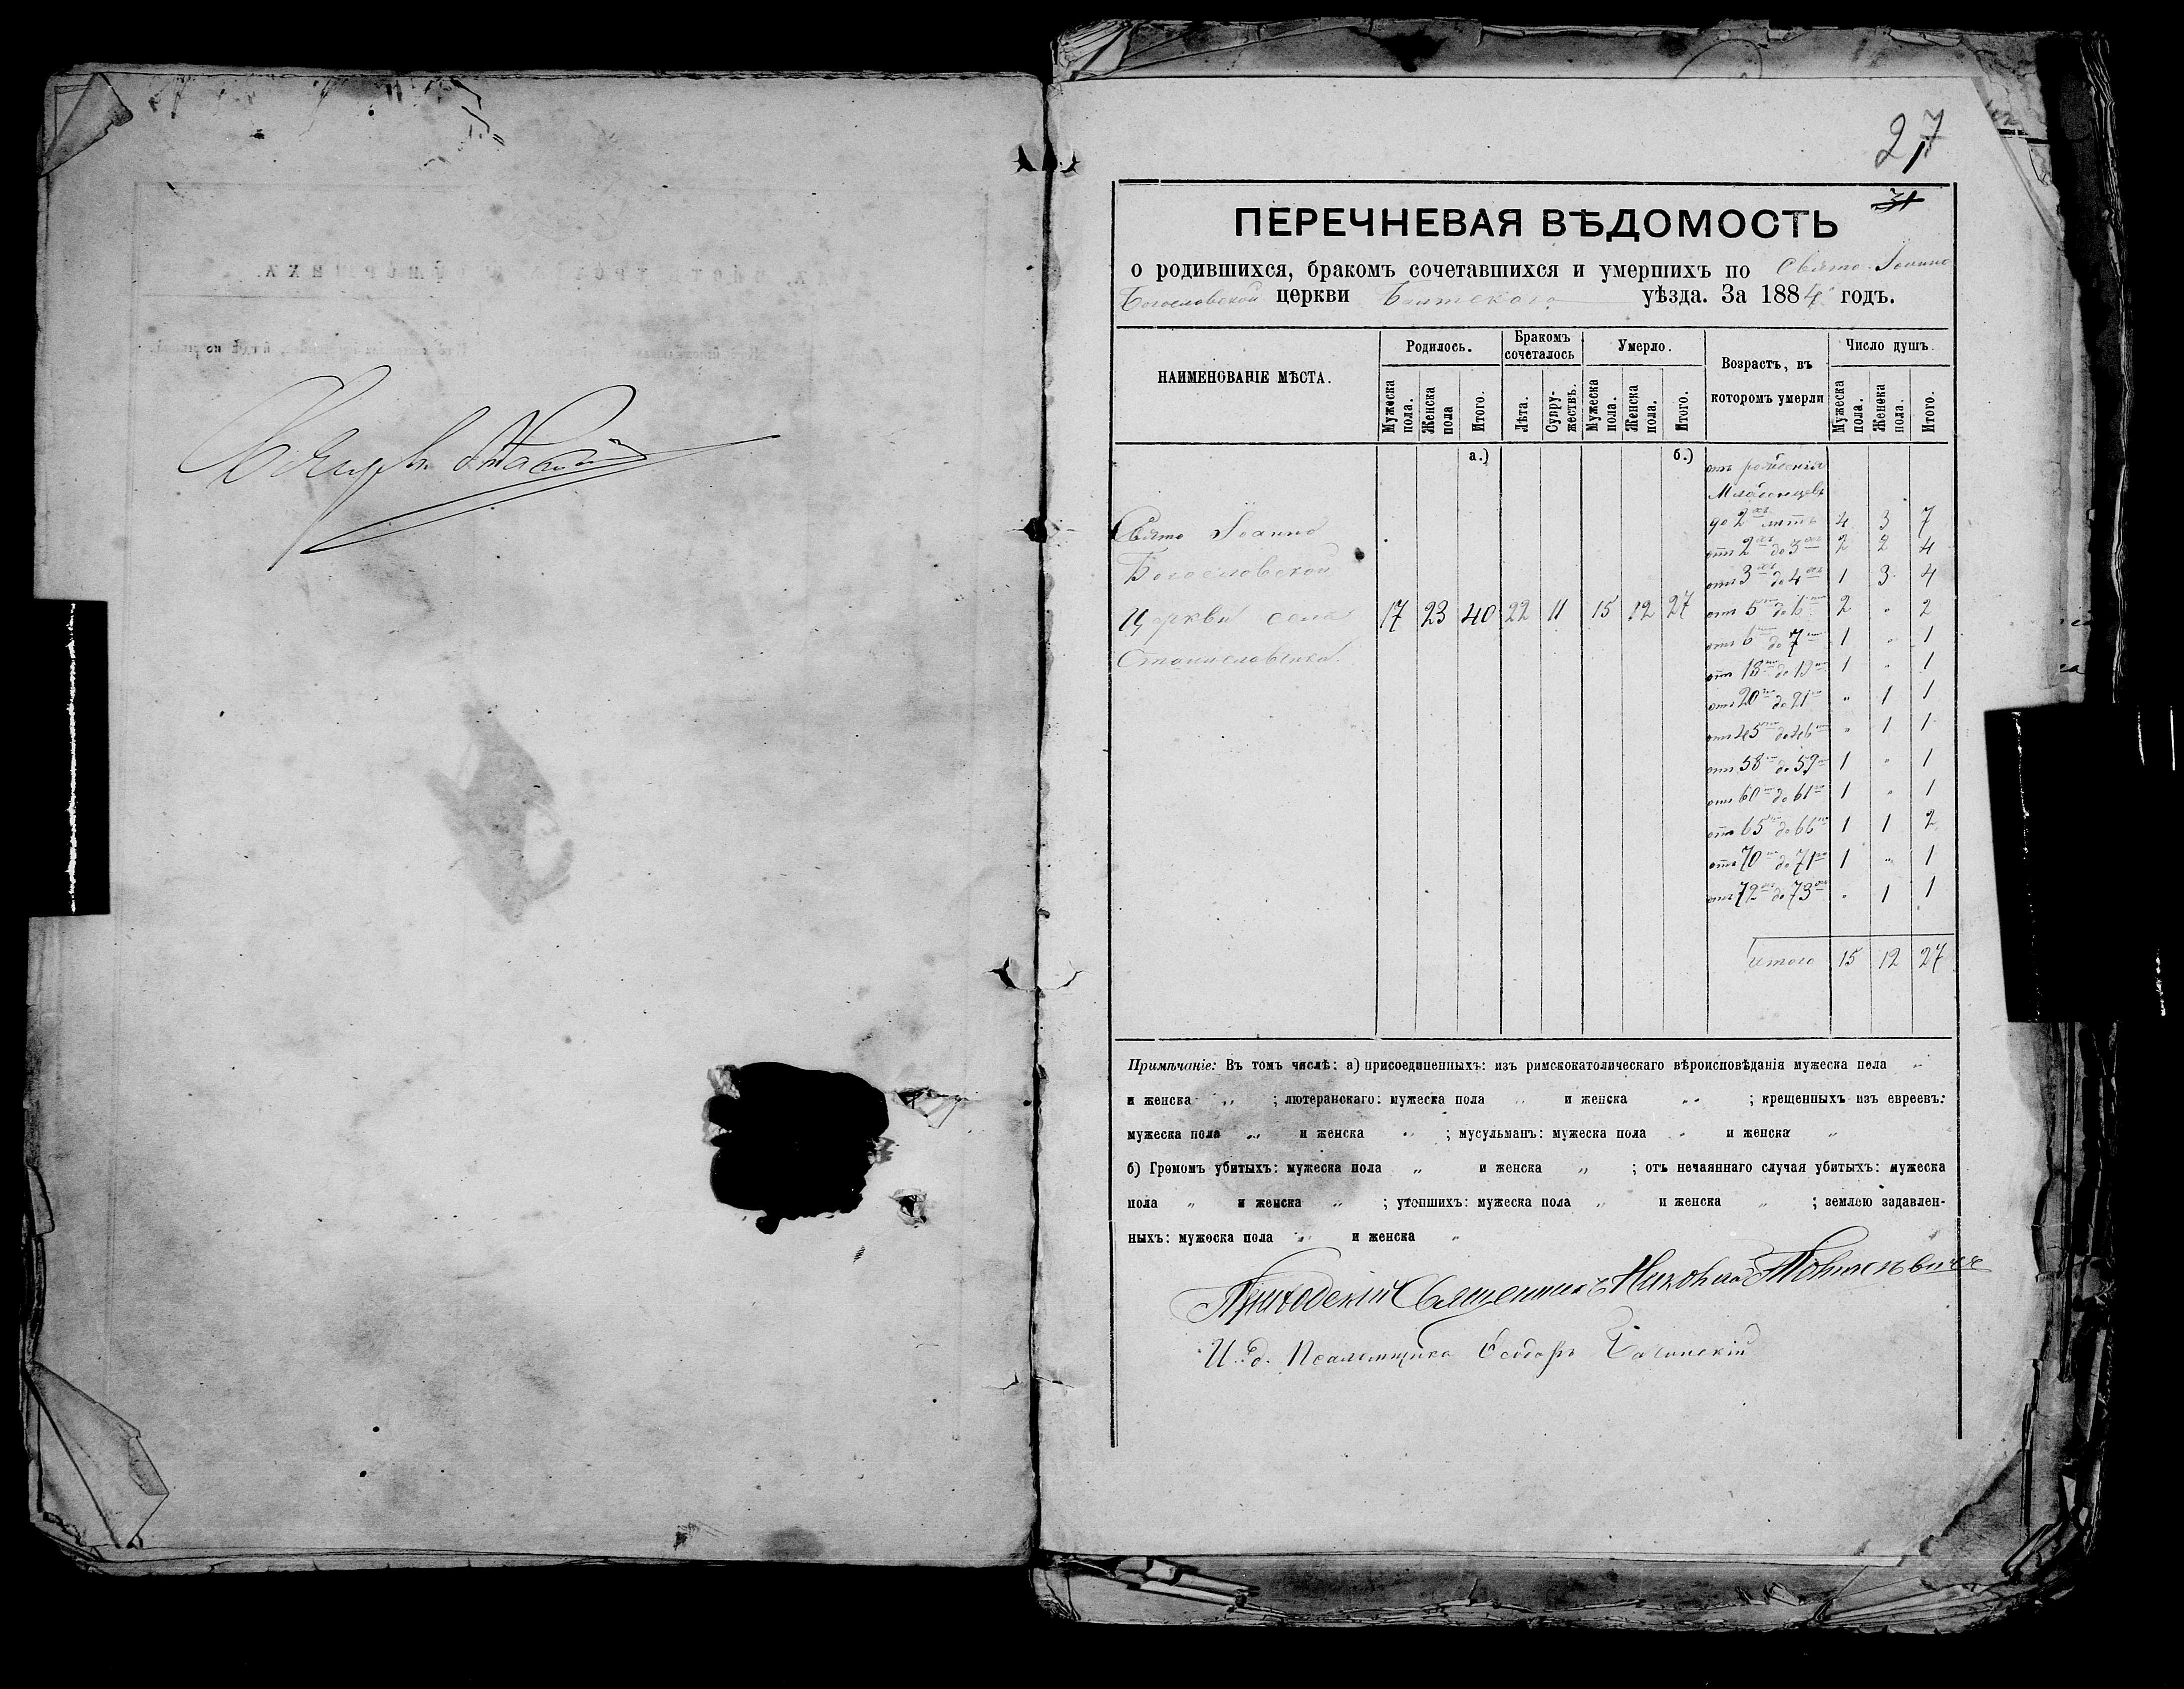 27
31
ПЕРЕЧНЕВАЯ ВѢДОМОСТЬ
о родившихся, бракомъ сочетавшихся и умершихъ по Свято-Іоанно
Богословской церкви Балтскаго уѣзда. За 1884 годъ.
НАИМЕНОВАНІЕ МѢСТА.
Родилось.
Бракомъ сочеталось
Умерло.
Возрастъ, въ которомъ умерли
Число душъ.
Мужеска пола.
Женска пола
Итого.
Лѣта.
Супружествъ.
Мужеска пола.
Женска пола.
Итого.
Мужеска пола.
Женска пола.
Итого.
а.) б.)
отъ рожденія
Младенцевъ
до 2хъ лѣтъ 4 3 7
отъ 2хъ до 3хъ 2 2 4
отъ 3хъ до 4хъ 1 3 4
Свято Іоанно
Богословской
Церкви села
Станиславчика.
17 23 40 22 11 15 12 27
отъ 5ти до 6ти 2 " 2
отъ 6ти до 7ми 1 " 1
отъ 18ти до 19ти 1 " 1
отъ 20ти до 21го " 1 1
отъ 45ти до 46ти " 1 1
отъ 58ми до 59ти 1 " 1
отъ 60ти до 61го 1 " 1
отъ 65ти до 66ти 1 1 2
отъ 70ти до 71го 1 " 1
отъ 72хъ до 73хъ " 1 1
Итого 15 12 27
Примѣчаніе: Въ томъ числѣ: а) присоединенныхъ: изъ римскокатолическаго вѣроисповѣданія мужеска пола "
и женска " ; лютеранскаго: мужеска пола " и женска " ; крещенныхъ изъ евреевъ:
мужеска пола " и женска " ; мусульманъ: мужеска пола " и женска "
б) Громомъ убитыхъ: мужеска пола " и женска " ; отъ нечаяннаго случая убитыхъ: мужеска
пола " и женска " ; утопшихъ: мужеска пола " и женска " ; землею задавлен-
ныхъ: мужеска пола " и женска "
Приходскій Священникъ Николай
И. д. Псаломщика Ѳеодоръ